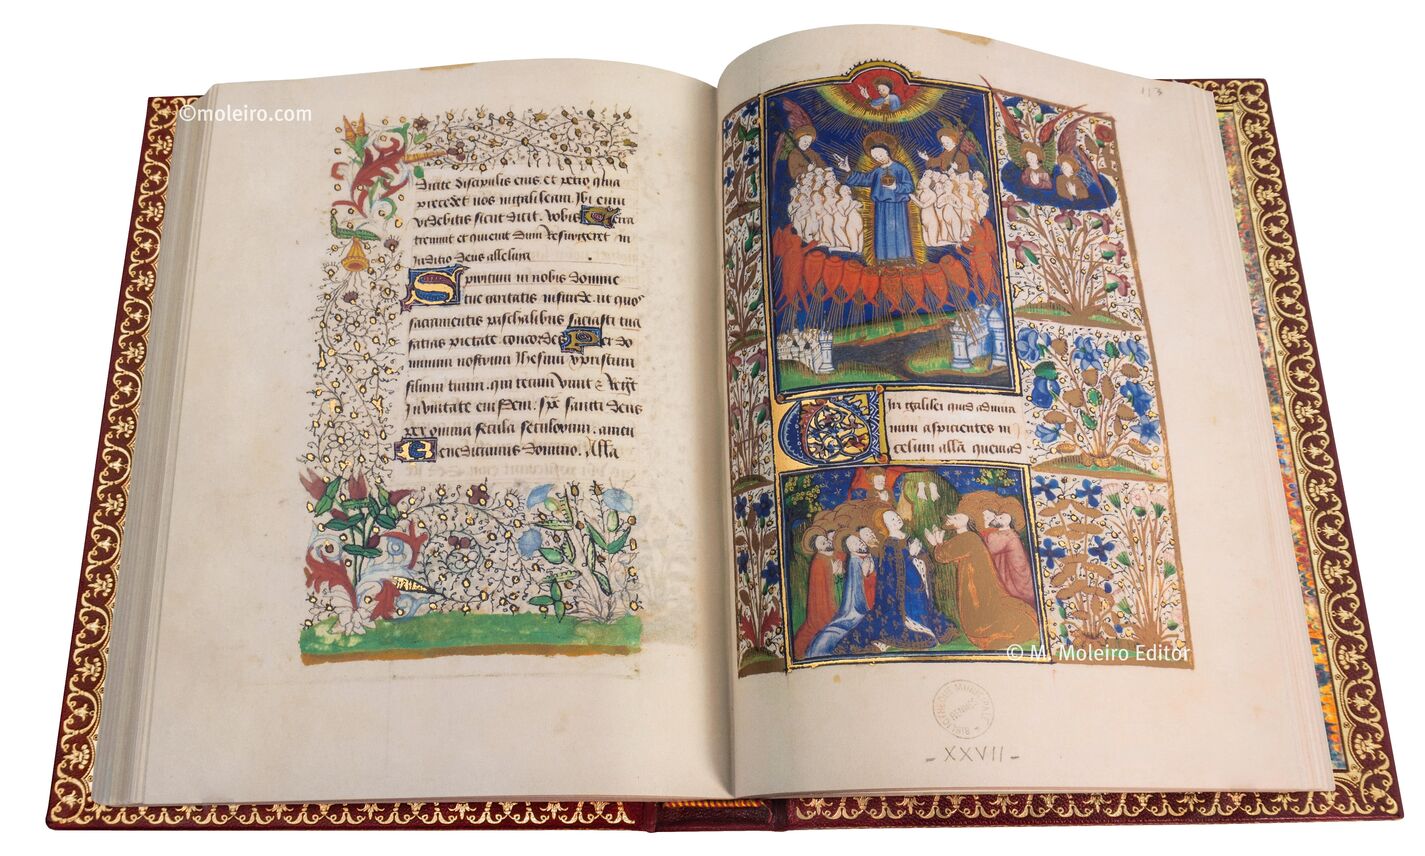 ©moleiro.com
dicite discipulis eius et petro quia
precedet vos in galileam. Ibi eum
videbitis sicut dixit vobis Terra
tremuit et quievit dum resurgeret in
iuditio deus alleluia
Spiritum in nobis domine
tue caritatis infunde. ut quos
sacramentis paschalibus saciasti tua
facias pietate concordes Per do
minum nostrum Ihesum xpristum
filium tuum. qui tecum vivit & regt
In unitate eiusdem. spc sancti deus
per omnia secula seculorum. amen
Benedicamus domino. Alla
113
Viri galilei quid admira
mini aspicientes in
celum alla quemad
© M. Moleiro Editor
BIBLIOTHEQUE MUNICIPALE
RENNES
- XXVII -